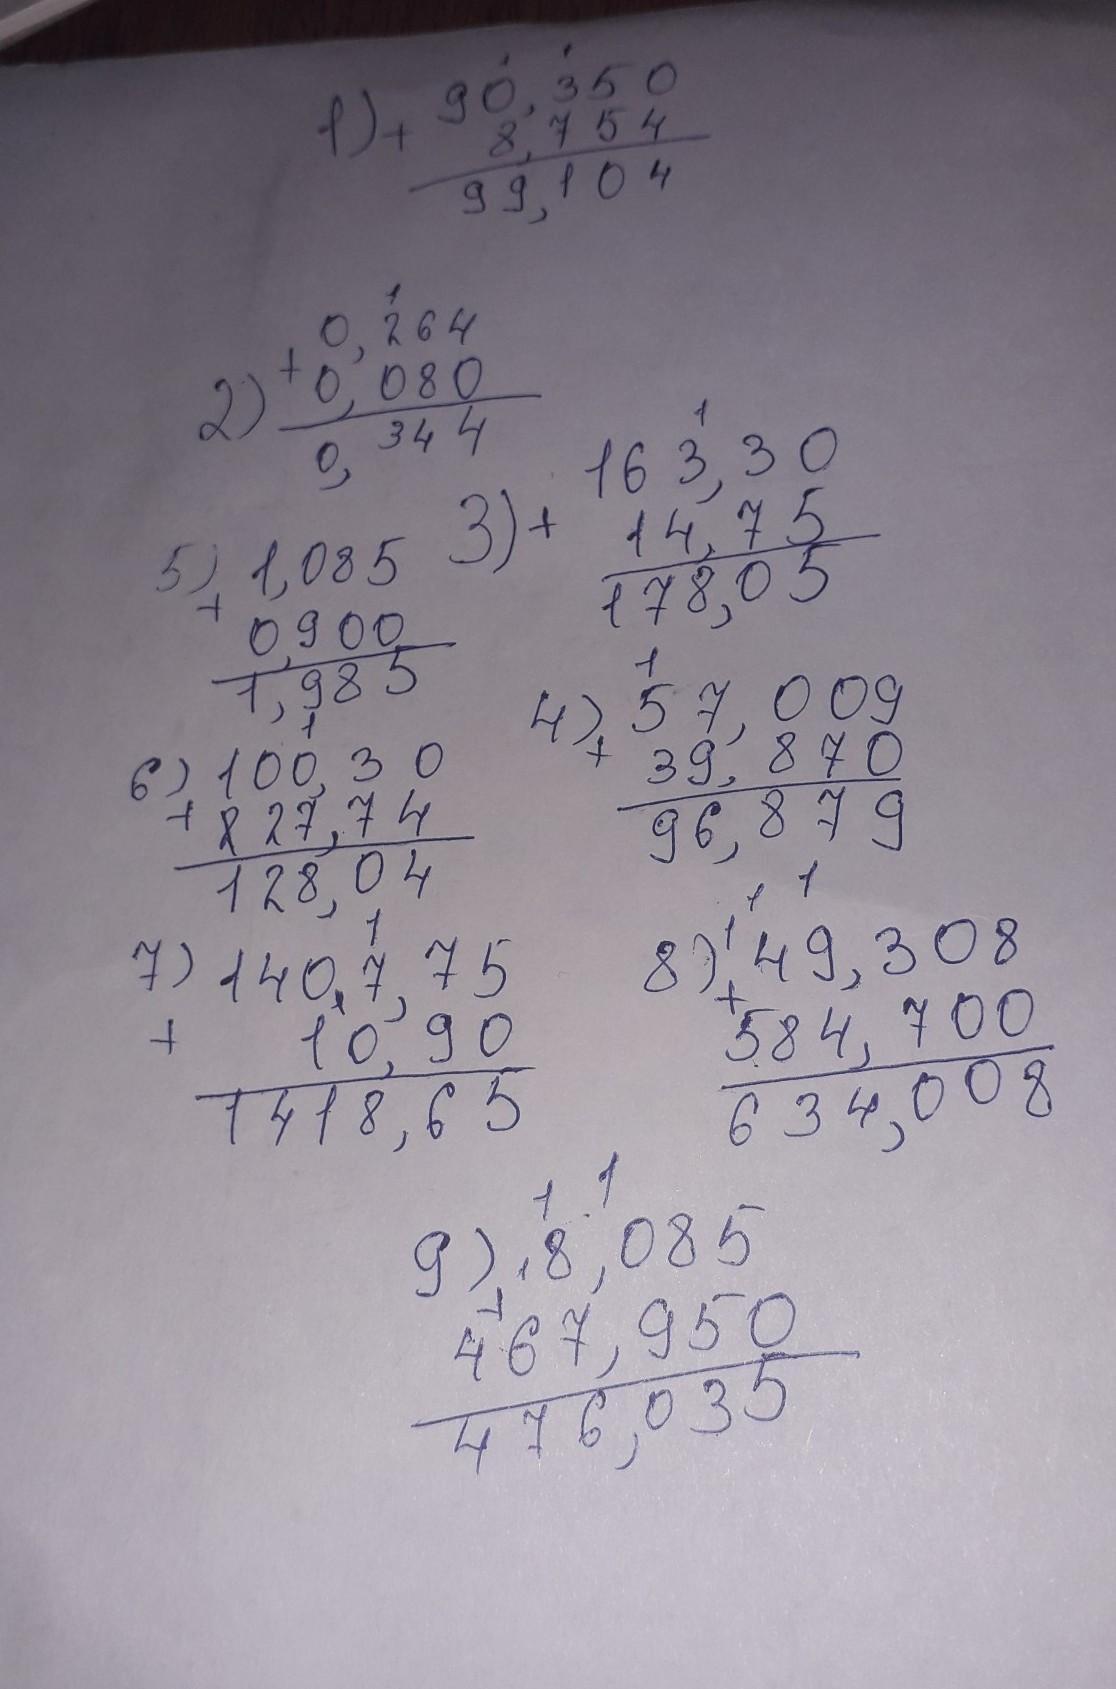 1) + 90,350
8,754
99,104
2) + 0,264
0,080
0,344
3) + 163,30
14,75
178,05
5) + 1,085
0,900
1,985
4) + 57,009
39,870
96,879
6) + 100,30
227,74
128,04
7) + 1407,75
10,90
1418,65
8) + 49,308
584,700
634,008
9) + 8,085
467,950
476,035